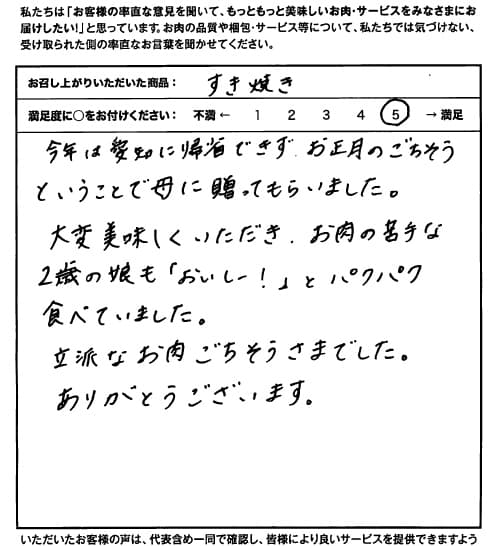 私たちは「お客様の率直な意見を聞いて、もっともっと美味しいお肉・サービスをみなさまにお
届けしたい!」と思っています。お肉の品質や梱包・サービス等について、私たちでは気づけない、
受け取られた側の率直なお言葉を聞かせてください。
お召し上がりいただいた商品: すき焼き
満足度に○をお付けください: 不満 ← 1 2 3 4 5 → 満足
今年は愛知に帰省できず、お正月のごちそう
ということで母に贈ってもらいました。
大変美味しくいただき、お肉の苦手な
2歳の娘も「おいしー!」とパクパク
食べていました。
立派なお肉ごちそうさまでした。
ありがとうございます。
いただいたお客様の声は、代表含め一同で確認し、皆様により良いサービスを提供できますよう